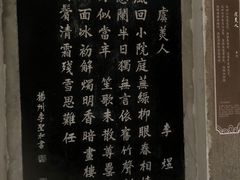 虞美人 李煜
風回小院庭蕪綠柳眼春相
憑闌半日獨無言依舊竹聲
似當年 笙歌未散尊罍
面冰初解 燭明香暗畫樓
鬢清霜殘雪思難任
揚州李聖和書
虞美人